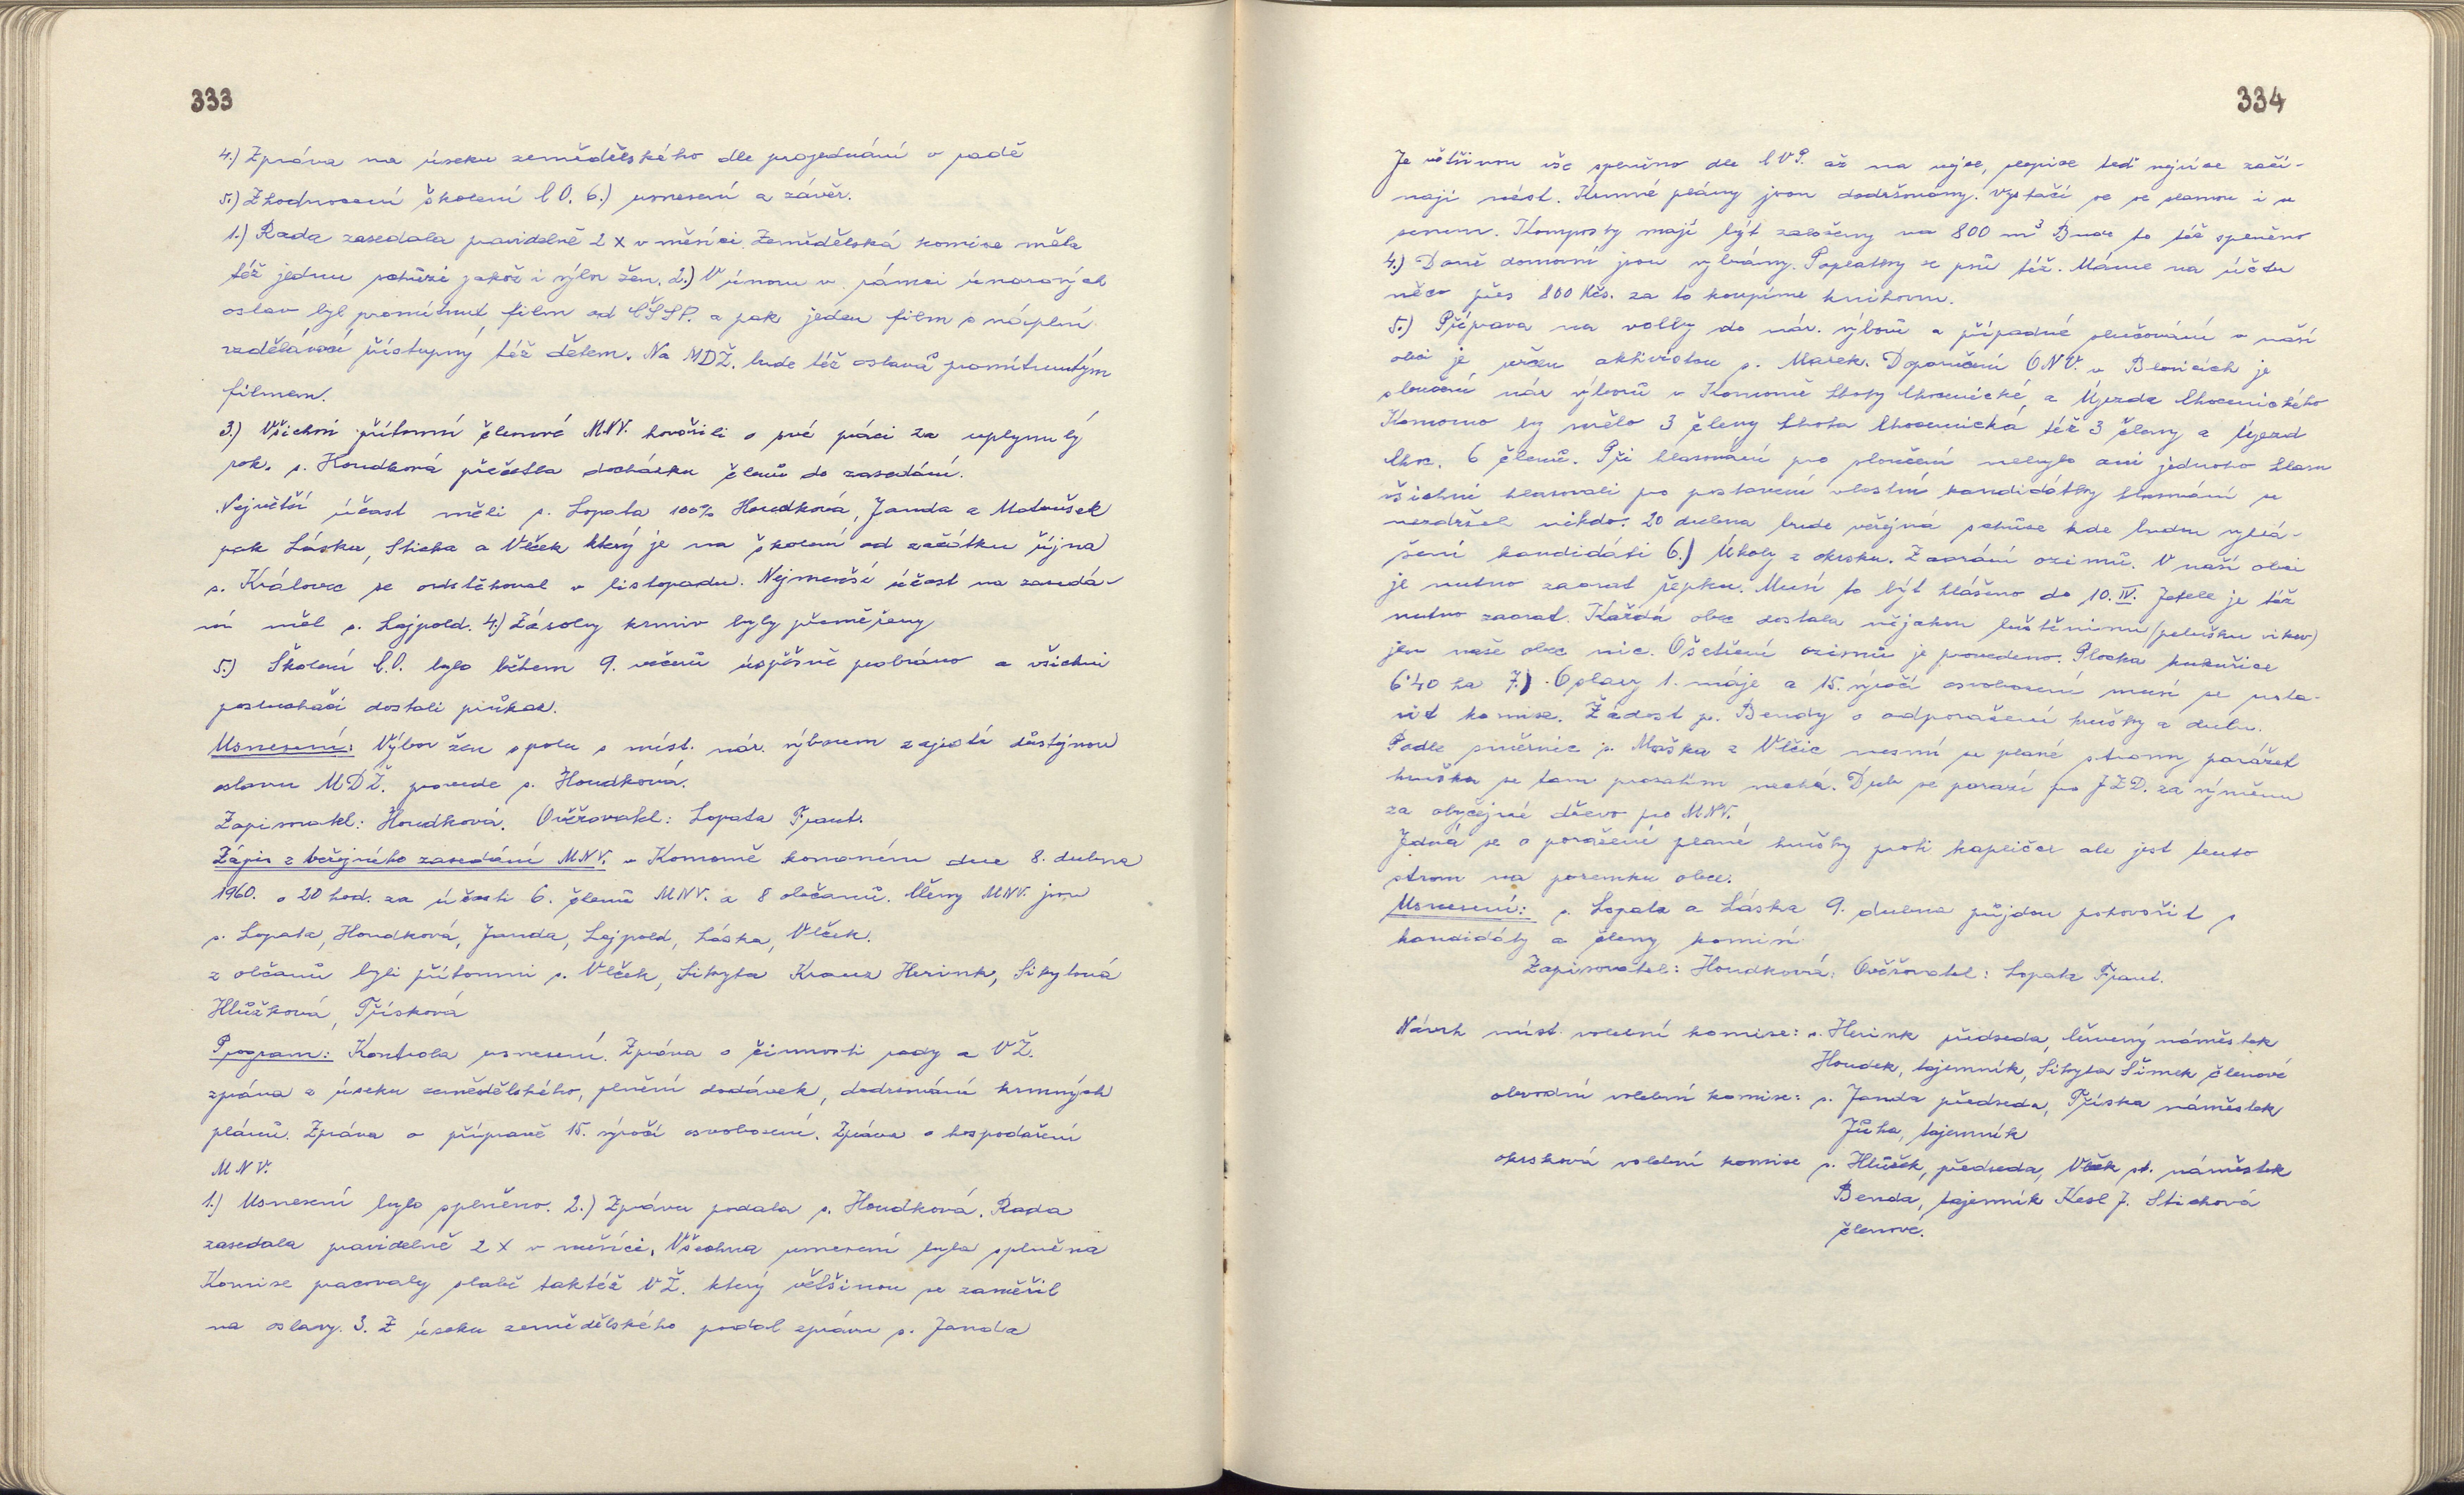 333
4.) Zpráva na úseku zemědělského dle projednání v radě
5.) Zhodnocení školení C O. 6.) usnesení a závěr.
1.) Rada zasedala pravidelně 2 x v měsíci. Zemědělská komise měla
též jednu schůzi jakož i výbor žen. 2.) V únoru v rámci únorových
oslav byl promítnut film od ČSSP. a pak jeden film s náplní
vzdělávací přístupný též dětem. Na MDŽ. bude též oslava promítnutým
filmem.
3.) Všichni přítomní členové MNV. hovořili o své práci za uplynulý
rok. s. Houdková přečetla docházku členů do zasedání.
Největší účast měli s. Lopata 100% Houdková, Janda a Matoušek
pak Láska, Sticha a Vlček který je na školení od začátku října
s. Královec se odstěhoval v listopadu. Nejmenší účast na zasedá-
ní měl s. Lejpold. 4.) Zásoby krmiv byly přeměřeny
5.) Školení C.O. bylo během 9. večerů úspěšně probráno a všichni
posluchači dostali průkaz.
Usnesení: Výbor žen spolu s míst. nár. výborem zajistí důstojnou
oslavu MDŽ. provede s. Houdková.
Zapisovatel: Houdková. Ověřovatel: Lopata Frant.
Zápis z veřejného zasedání MNV. v Komorně konaném dne 8. dubna
1960. o 20 hod. za účasti 6. členů MNV. a 8 občanů. Členy MNV. jsou
s. Lopata, Houdková, Janda, Lejpold, Láska, Vlček.
z občanů byli přítomni s. Vlček, Sikyta Kraus Herink, Sikytová
Hlůžková, Třísková
Program: Kontrola usnesení. Zpráva o činnosti rady a VŽ.
zpráva z úseku zemědělského, plnění dodávek, dodržování krmných
plánů. Zpráva o přípravě 15. výročí osvobození. Zpráva o hospodaření
MNV.
1.) Usnesení bylo splněno. 2.) Zprávu podala s. Houdková. Rada
zasedala pravidelně 2 x v měsíci. Všechna usnesení byla splněna
Komise pracovaly slabě taktéž VŽ. který většinou se zaměřil
na oslavy. 3. Z úseku zemědělského podal zprávu s. Janda
334
Je většinou vše splněno dle až na vejce, slepice teď nejvíce začí-
nají nést. Krmné plány jsou dodržovány. Vystačí se se slamou i se
senem. Komposty mají být založeny na 800 m³ Bude to též splněno
4.) Daně domovní jsou vybrány. Poplatky ze psů též. Máme na účtu
něco přes 800 Kčs. za to koupíme knihovnu.
5.) Příprava na volby do nár. výborů a případné slučování v naší
obci je určen aktivistou s. Marek. Doporučení ONV. v Benicích je
sloučení nár výborů v Komorně Lhoty Chocenické, a Újezda Chocenického
Komorno by mělo 3 členy Lhota Chocenická též 3 členy a Újezd
Choc. 6 členů. Při hlasování pro sloučení nebylo ani jednoho hlasu
všichni hlasovali pro postavení vlastní kandidátky hlasování se
nezdržel nikdo. 20 dubna bude veřejná schůze kde budou vyhlá-
šení kandidáti 6.) Úkoly z okrsku. Zaorání ozimů. V naší obci
je nutno zaorat řepku. Musí to být hlášeno do 10. IV. Jetele je též
nutno zaorat. Každá obec dostala nějakou luštěninu (pelušku vikev)
jen naše obec nic. Ošetření ozimů je provedeno. Plocha kukuřice
6·40 ha 7.) Oslavy 1. máje a 15. výročí osvobození musí se usta-
vit komise. Žádost p. Bendy o odporažení hrušky a dubu.
Podle směrnic s. Maška z Vlčic nesmí se plané stromy porážet
hruška se tam prozatím nechá. Dub se porazí pro JZD. za výměnu
za obyčejné dřevo pro MNV.
Jedná se o poražení plané hrušky proti kapličce ale jest tento
strom na pozemku obce.
Usnesení: s. Lopata a Láska 9. dubna půjdou pohovořit s
kandidáty a členy komisí
Zapisovatel: Houdková: Ověřovatel: Lopata Frant.
Návrh míst. volební komise: s. Herink předseda, Červený náměstek
Houdek, tajemník, Sikyta Šimek členové
obvodní volební komise: s. Janda předseda, Tříska náměstek
Jůha, tajemník
okrsková volební komise s. Hlůžek, předseda, Vlček st. náměstek
Benda, tajemník Kesl J. Stichová
členové.